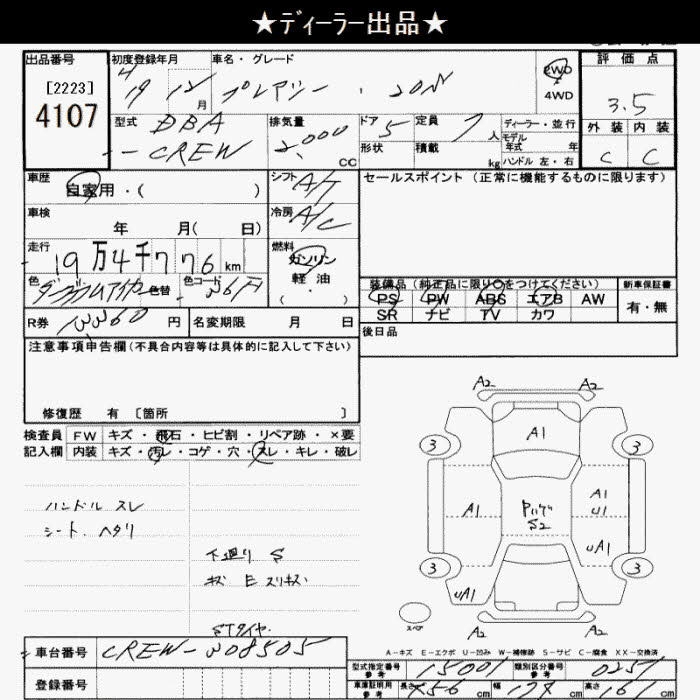 ★ディーラー出品★
出品番号
[2223]
4107
初度登録年月
19 12 月
車名・グレード
プレマシー ・ 20N
2WD
4WD
評価点
3.5
外装 内装
C C
型式
DBA
-CREW
排気量
2,000
CC
ドア
5
形状
定員
7 人
積載
kg
ディーラー・並行
モデル
年式 年
ハンドル 左・右
車歴
自家用・( )
シフト
A/T
車検
年 月( 日)
冷房
A/C
走行
19万4千776 km
燃料
ガソリン
軽油
( ・ )
色
色替
色コード
36A
R券
13360 円
名変期限 月 日
セールスポイント(正常に機能するものに限ります)
装備品(純正品に限り○をつけてください)
PS PW ABS エアB AW
SR ナビ TV カワ
新車保証書
有・無
後日品
注意事項申告欄(不具合内容等は具体的に記入して下さい)
修復歴 有 〔箇所 〕
検査員
記入欄
FW キズ・飛石・ヒビ割・リペア跡・×要
内装 キズ・汚レ・コゲ・穴・スレ・キレ・破レ
ハンドル スレ
シート、ヘタリ
下廻り S
キズ E スリキズ
STタイヤ
A2 A2
A1
3 3
A1
A1
U1
S2
uA1
3 3
uA1
A2 A2
スペア
A-キズ E-エクボ U-凹み W-補修跡 S-サビ C-腐食 XX-交換済
車台番号
CREW-308505
登録番号
型式指定番号
参考
15001
類別区分番号
参考
0257
車庫証明用
参考
長さ 456 cm
幅 174 cm
高さ 161 cm